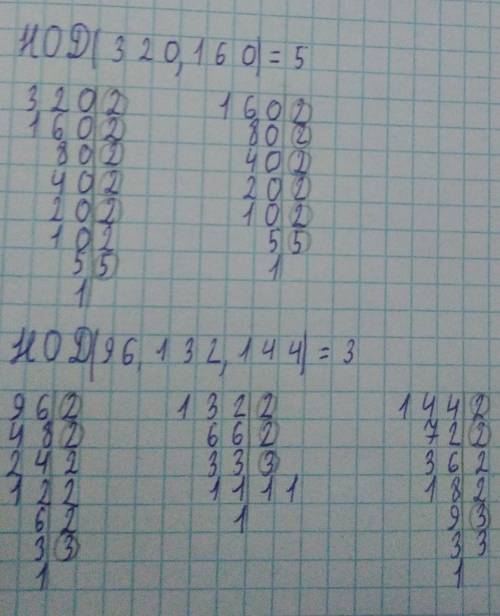 НОД(320,160)=5
320 2 160 2
160 2 80 2
80 2 40 2
40 2 20 2
20 2 10 2
10 2 5 5
5 5 1
1
НОД(96,132,144)=3
96 2 132 2 144 2
48 2 66 2 72 2
24 2 33 3 36 2
12 2 11 11 18 2
6 2 1 9 3
3 3 3 3
1 1